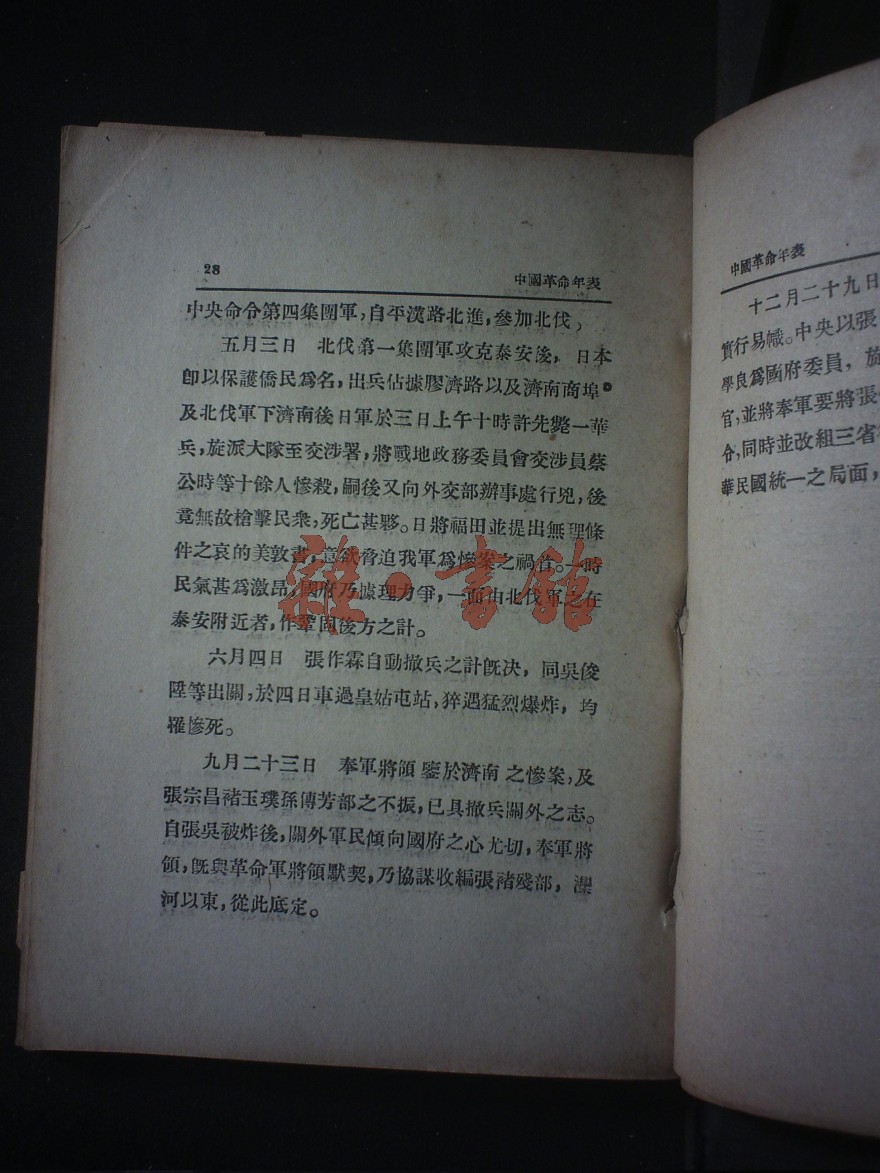 28
中國革命年表
中央命令第四集團軍，自平漢路北進，參加北伐，
五月三日　北伐第一集團軍攻克泰安後，日本
即以保護僑民爲名，出兵佔據膠濟路以及濟南商埠。
及北伐軍下濟南後日軍於三日上午十時許先斃一華
兵，旋派大隊至交涉署，將戰地政務委員會交涉員蔡
公時等十餘人慘殺，嗣後又向外交部辦事處行兇，後
竟無故槍擊民衆，死亡甚夥。日將福田並提出無理條
件之哀的美敦書，意欲脅迫我軍爲慘案之禍首。一時
民氣甚爲激昂，國府乃據理力爭，一面由北伐軍之在
泰安附近者，作鞏固後方之計。
六月四日　張作霖自動撤兵之計旣決，同吳俊
陞等出關，於四日車過皇姑屯站，猝遇猛烈爆炸，均
罹慘死。
九月二十三日　奉軍將領鑒於濟南之慘案，及
張宗昌褚玉璞孫傳芳部之不振，已具撤兵關外之志。
自張吳被炸後，關外軍民傾向國府之心尤切，奉軍將
領，旣與革命軍將領默契，乃協謀收編張褚殘部，灤
河以東，從此底定。
中國革命年表
十二月二十九日
實行易幟。中央以張
學良爲國府委員，旋
官，並將奉軍要將張
令，同時並改組三省
華民國統一之局面，
雜·書館